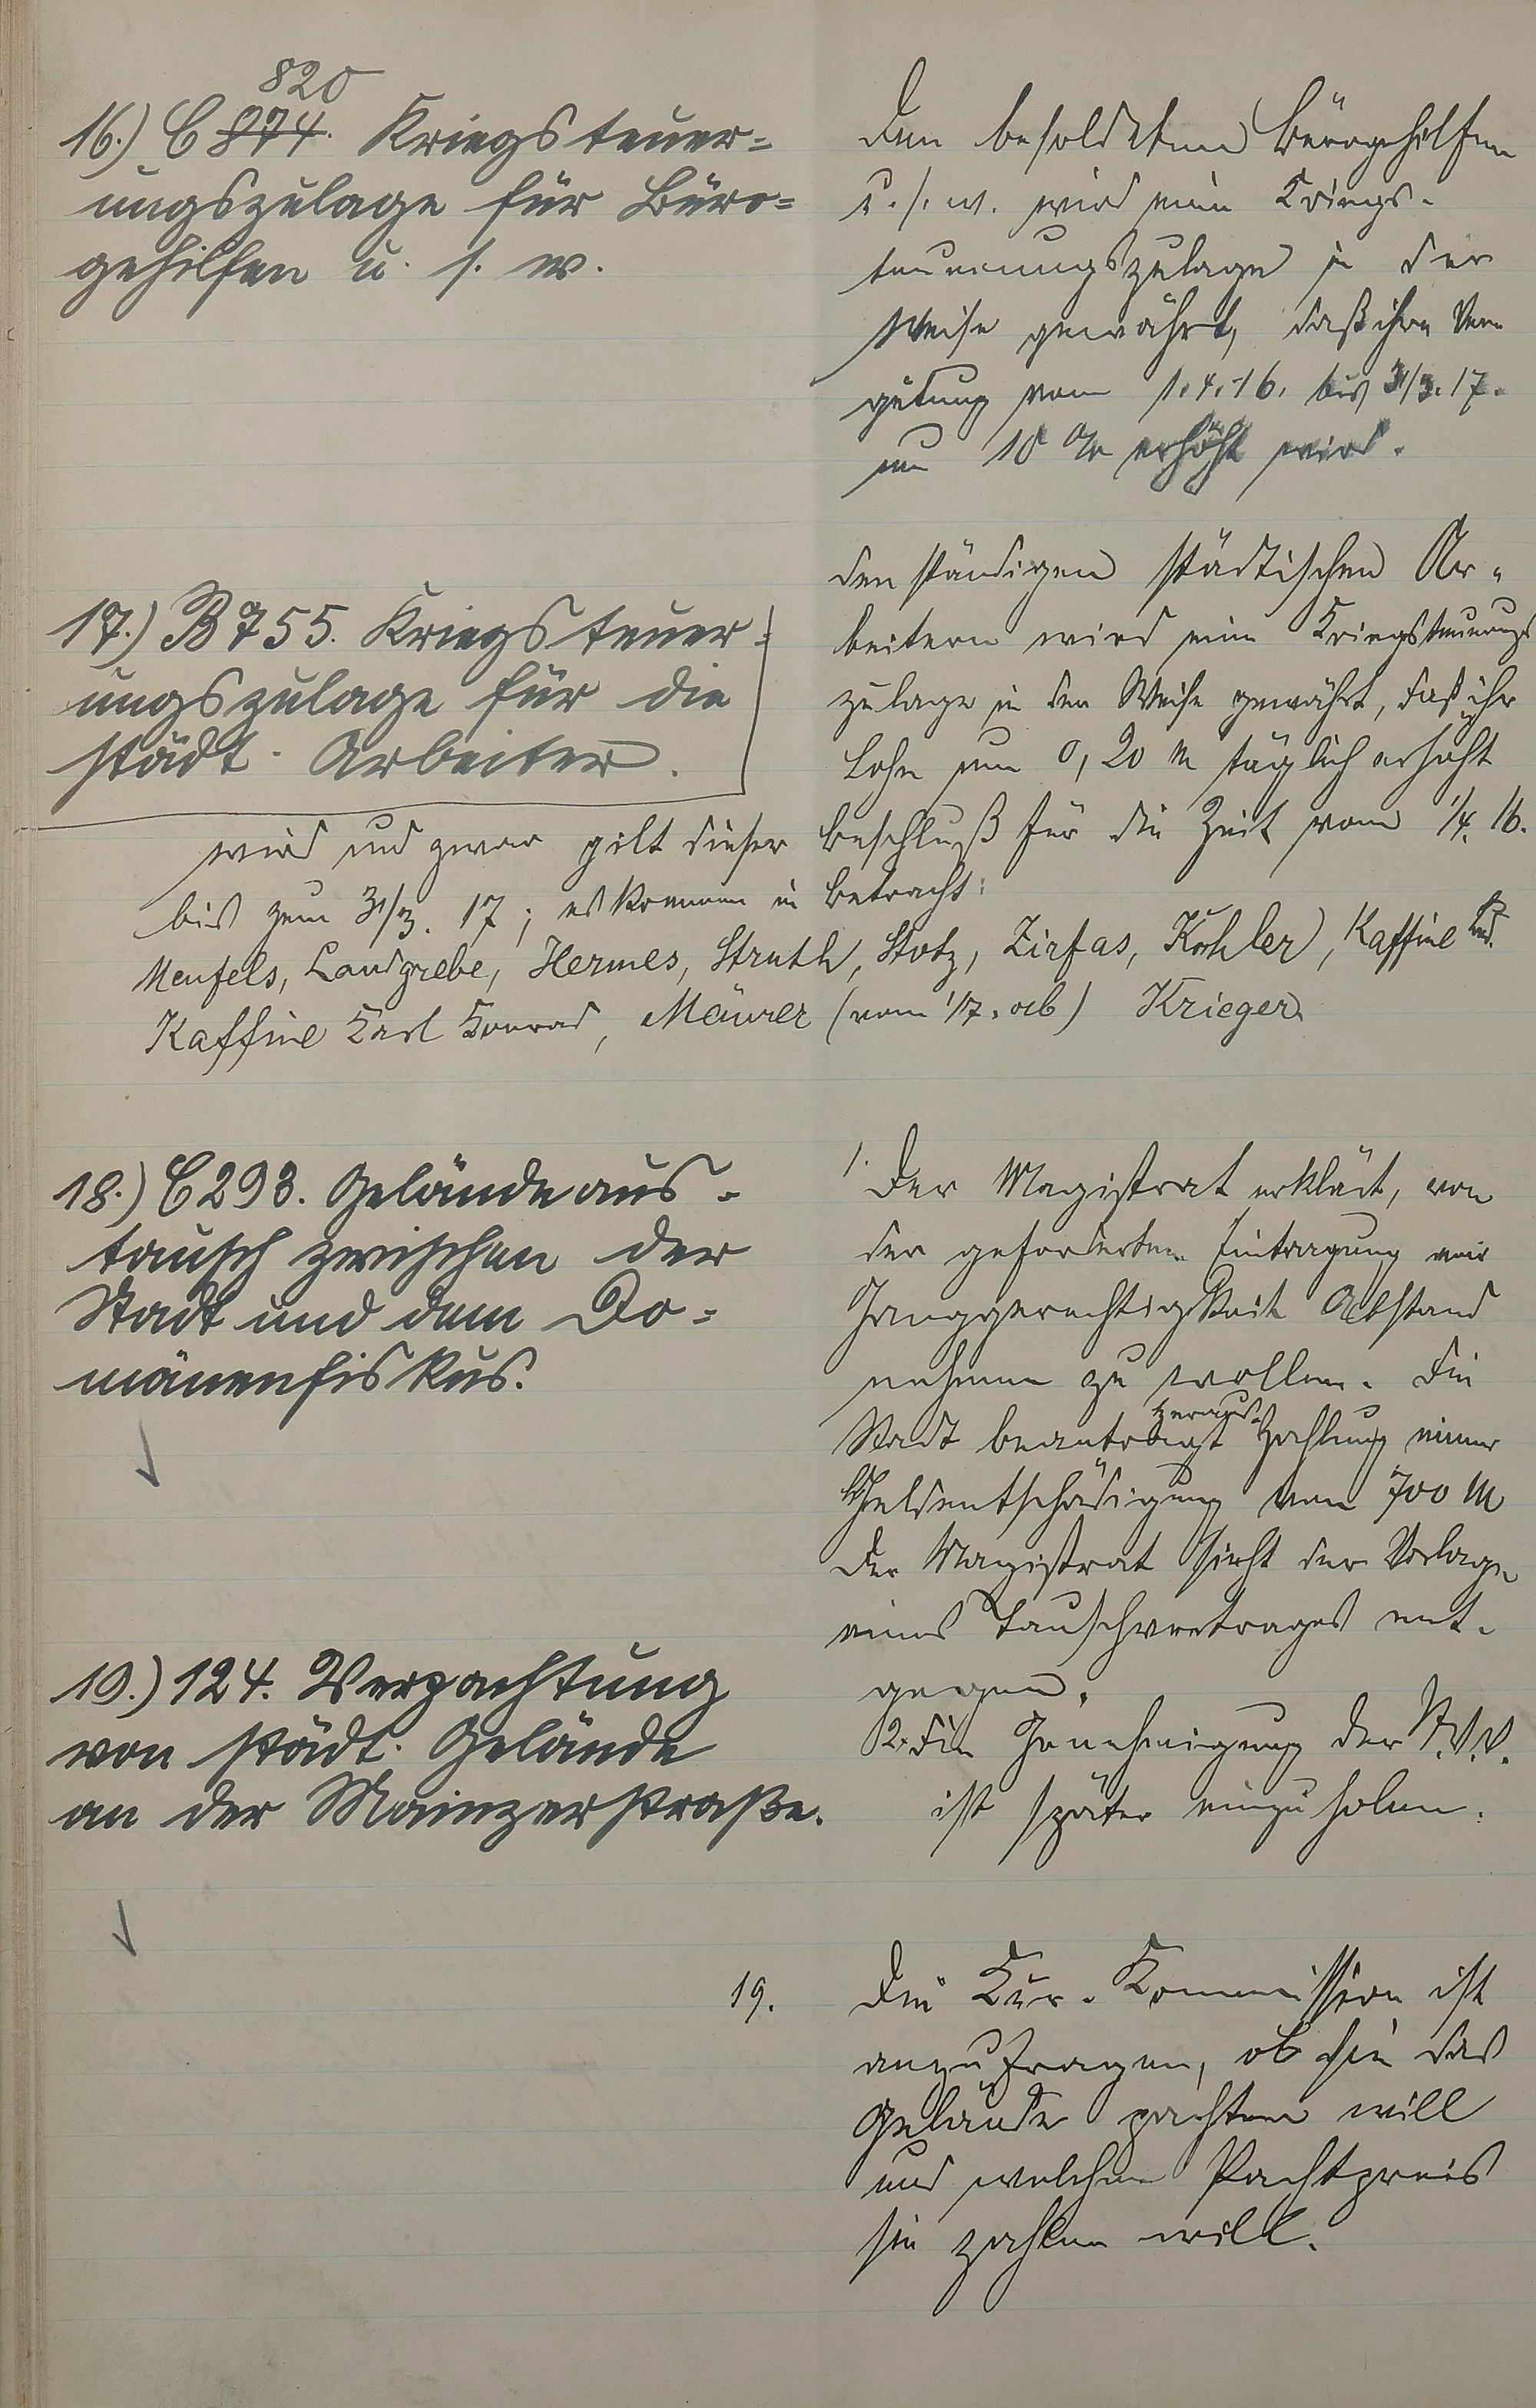 820
16.) C 874. Kriegsteuer=
ungszulage für Büro=
gehilfen u. s. w.
Den besoldeten Bürogehilfen
u. s. w. wird eine Kriegs-
teuerungszulage in der
Weise gewährt, daß ihre Ver
gütung vom 1.4.16. bis 31/3.17.
um 10 % erhöht wird.
17.) B 755. Kriegsteuer=
ungszulage für die
städt. Arbeiter.
den ständigen städtischen Ar-
beitern wird eine Kriegsteuerungs
zulage in der Weise gewährt, daß ihr
Lohn um 0,20 M täglich erhöht
wird und zwar gilt dieser Beschluß für die Zeit vom 1/4. 16.
bis zum 31/3. 17; es kommen in Betracht:
Menfels, Landgrebe, Hermes, Struth, Stotz, Zirfas, Köhler, Kaffine
Kaffine Karl Konrad, Mäurer (vom 1/7. ab) Krieger
18.) C 293. Geländeaus-
tausch zwischen der
Stadt und dem Do=
mänenfiskus.
1. Der Magistrat erklärt, von
der geforderten Eintragung eine
Ganggerechtigkeit Abstand
nehmen zu wollen. Die
Heraus-
Stadt beantragt Zahlung einer
Geldentschädigung von 700 M
Der Magistrat sieht der Vorlage
eines Tauschvertrages ent-
gegen.
2. Die Genehmigung der St.V.V.
ist später einzuholen.
19.) 124. Verpachtung
von städt. Gelände
an der Mainzerstraße.
19. Die Kur-Kommission ist
anzufragen, ob sie das
Gelände pachten will
und welchen Pachtpreis
sie zahlen will.